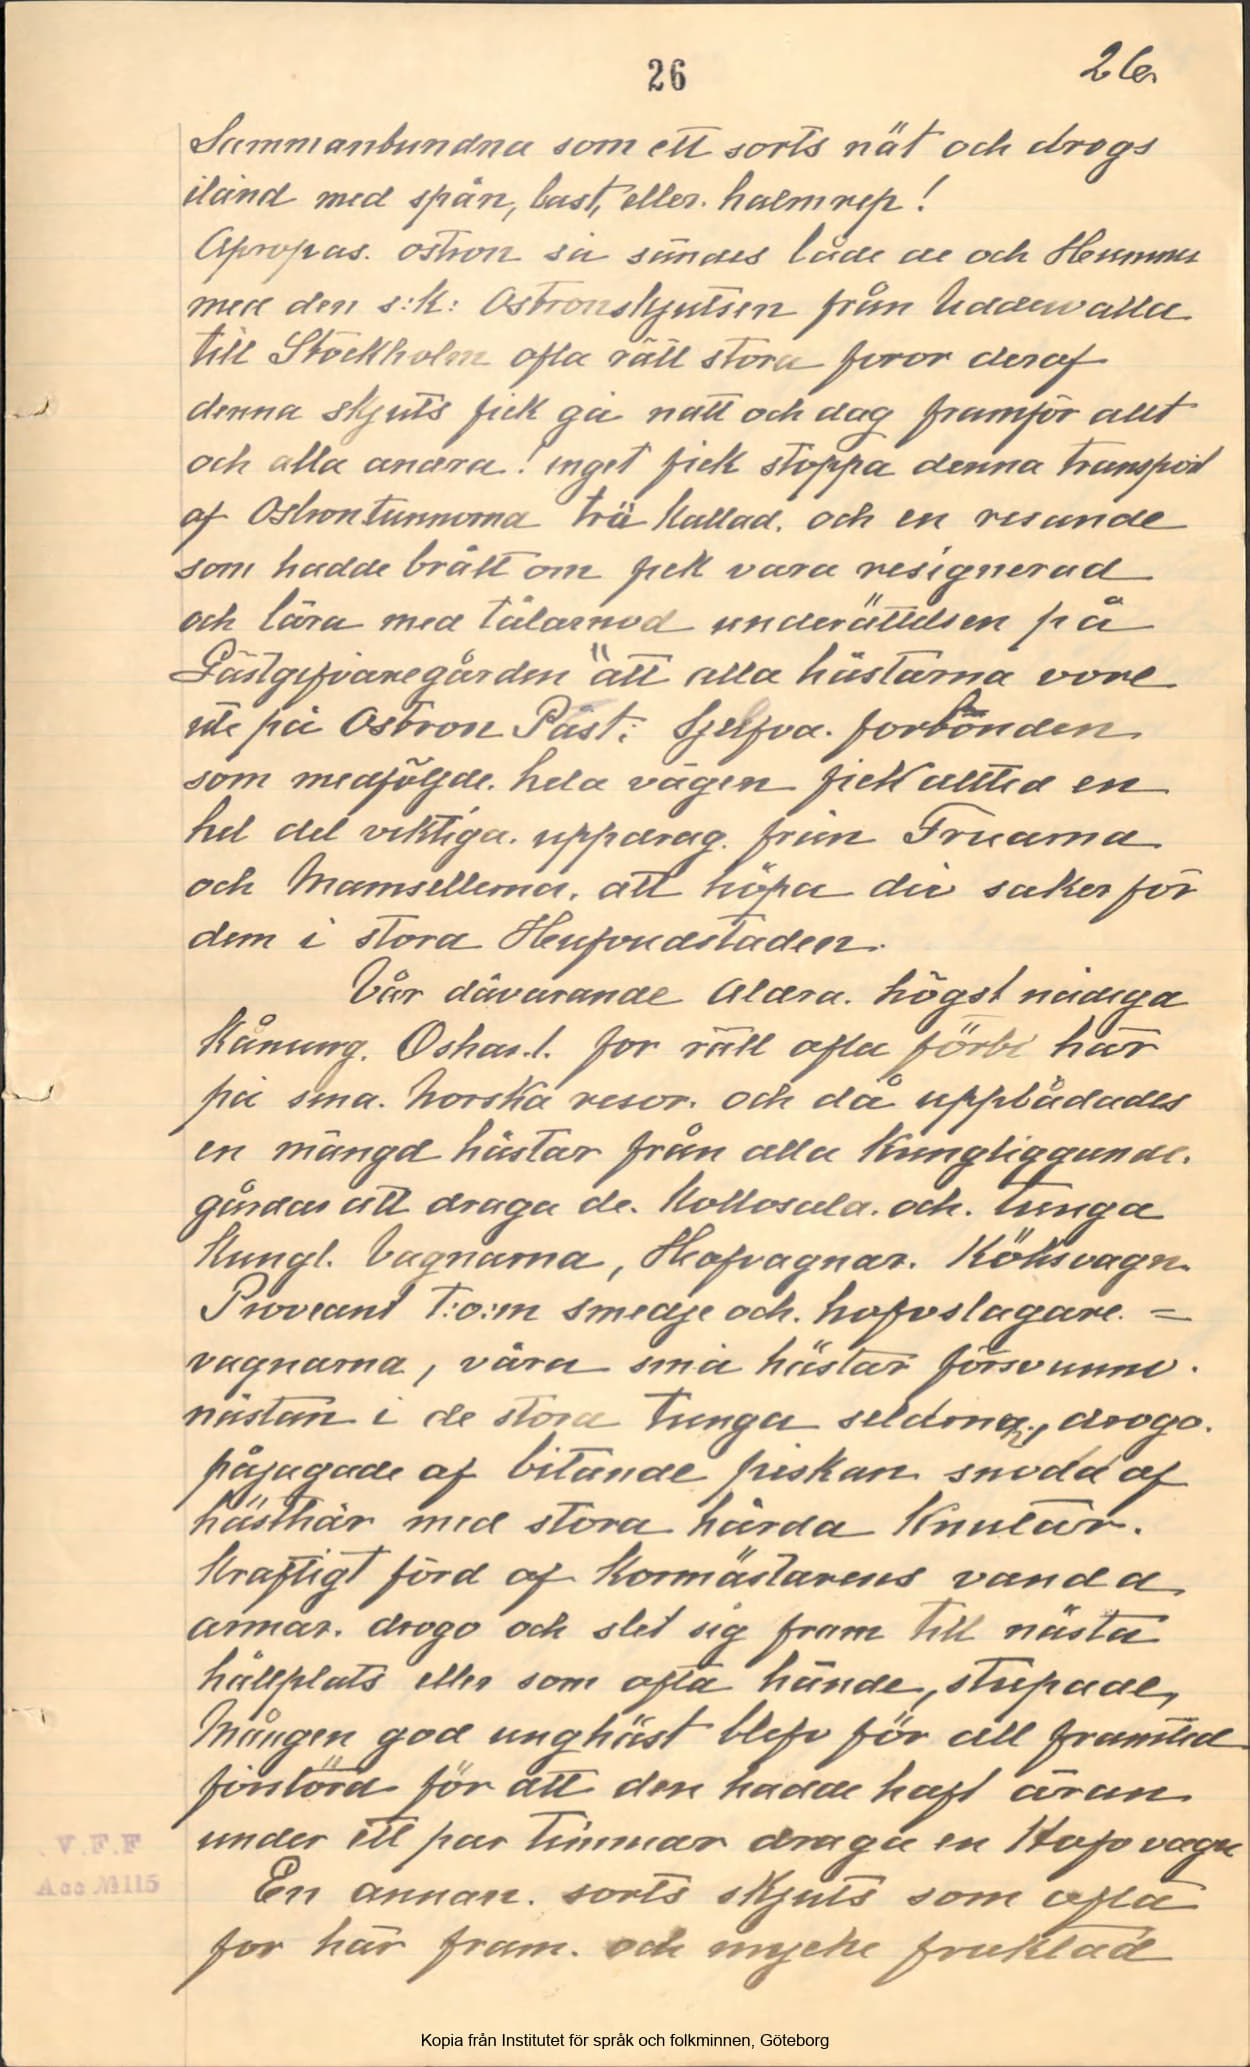 26
26
Sammanbundna som ett sorts nät och drogs
iland med spån, bast, eller. halmrep!
Apropas. ostron så sändes både de och Hummer
med den s:k: Ostronskjutsen från Uddewalla
till Stockholm ofta rätt stora foror deraf
denna skjuts fick gå natt och dag framför allt
och alla andra! inget fick stoppa denna transport
af Ostrontunnorna trä kallad. och en resande
som hadde brått om fick vara resignerad
och lära med tålamod underättelsen på
Gästgifvaregården "att alla hästarna vore
ute på Ostron Påst: Sjelfva. forbonden
som medföljde. hela vägen fick alltid en
hel del viktiga. uppdrag. från Fruarna
och Mamsellerna. att köpa div saker för
dem i stora Hufvudstaden.
Vår dåvarande Aldra. högst nådiga
Kånung. Oskar.I. for rätt ofta förbi här
på sina. Norska resor. och då uppbådades
en mängd hästar från alla kringliggande.
gårdar att draga de. kollosala. och. tunga
Kungl. Vagnarna, Hofvagnar. Köksvagn.
Proviant t:o:m smedje och. hofvslagare. =
vagnarna, våra små hästar försvunno.
nästan i de stora tunga seldona, drogo.
påjagade af bitande piskan snodd af
hästhår med stora hårda Knutar.
Kraftigt förd af Kormästarens vanda
armar. drogo och slet sig fram till nästa
hållplats eller som ofta hände, stupade,
Mången god unghäst blefv för all framtid
förstörd för att den hadde haft äran
under ett par timmar draga en Hofvvagn
En annan. sorts skjuts som ofta
for här fram. och mycke fruktad
V.F.F
Acc M115
Kopia från Institutet för språk och folkminnen, Göteborg